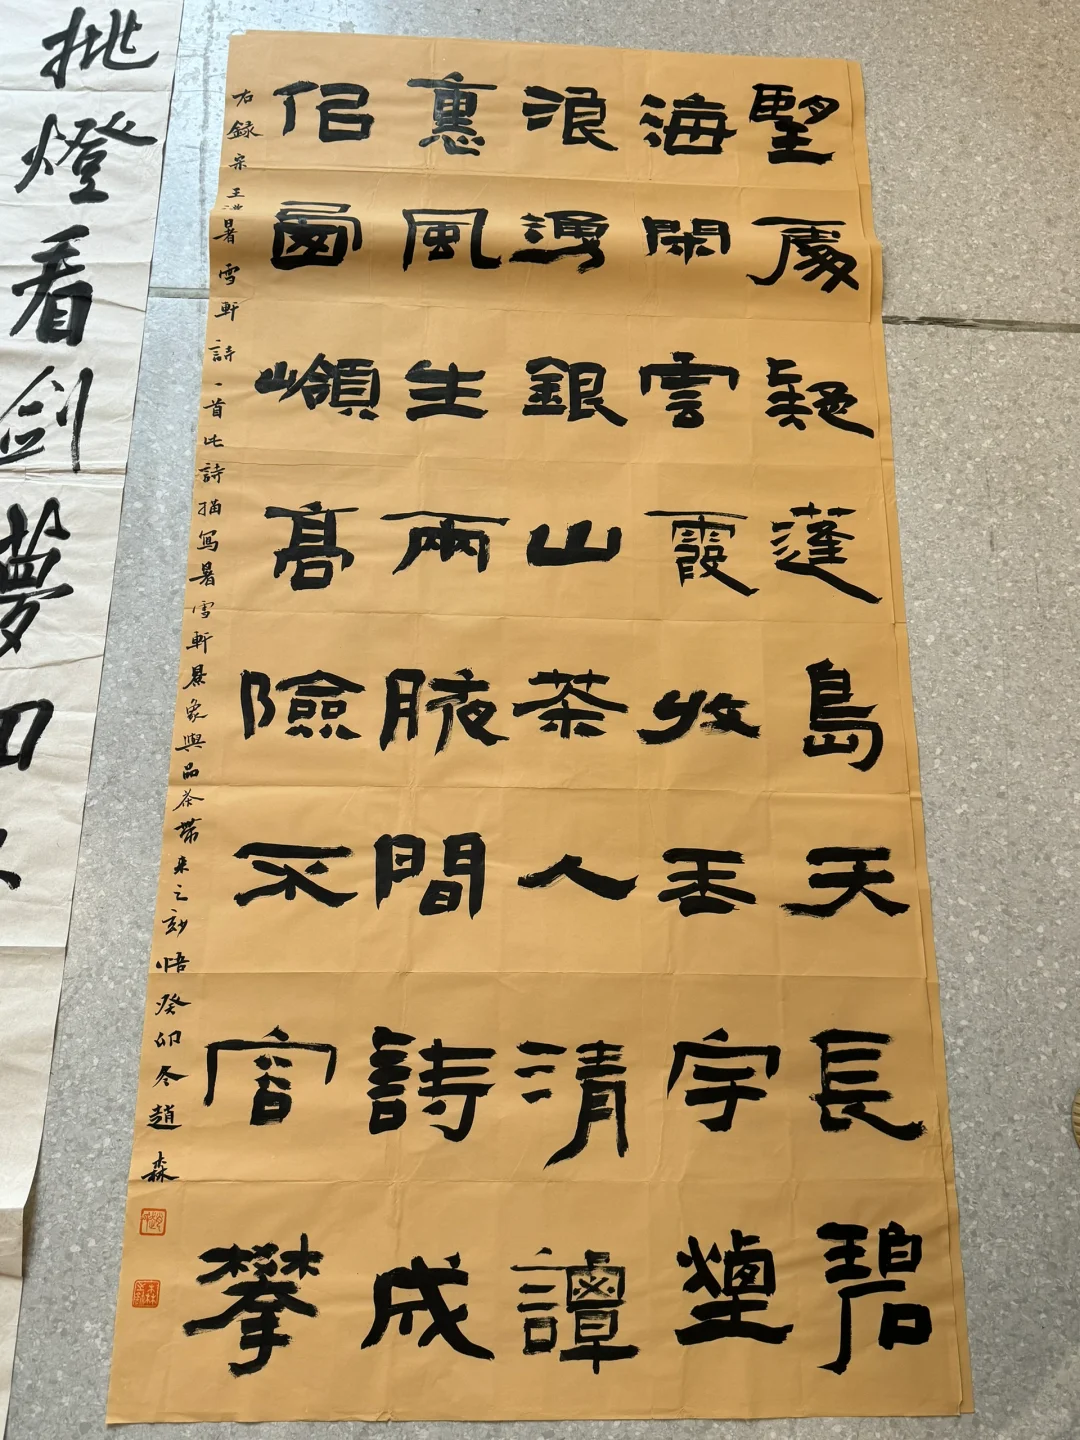 朢處疑蓬島天長碧
海閑雲霞收玉宇煙
浪湧銀山茶人清譚
裏風生兩腋間詩成
佀圖嶺高險不容攀
右錄宗王暑雪軒詩一首此詩描寫暑雪軒景象與品茶帶來之妙悟癸卯冬趙森
挑燈看剑夢回